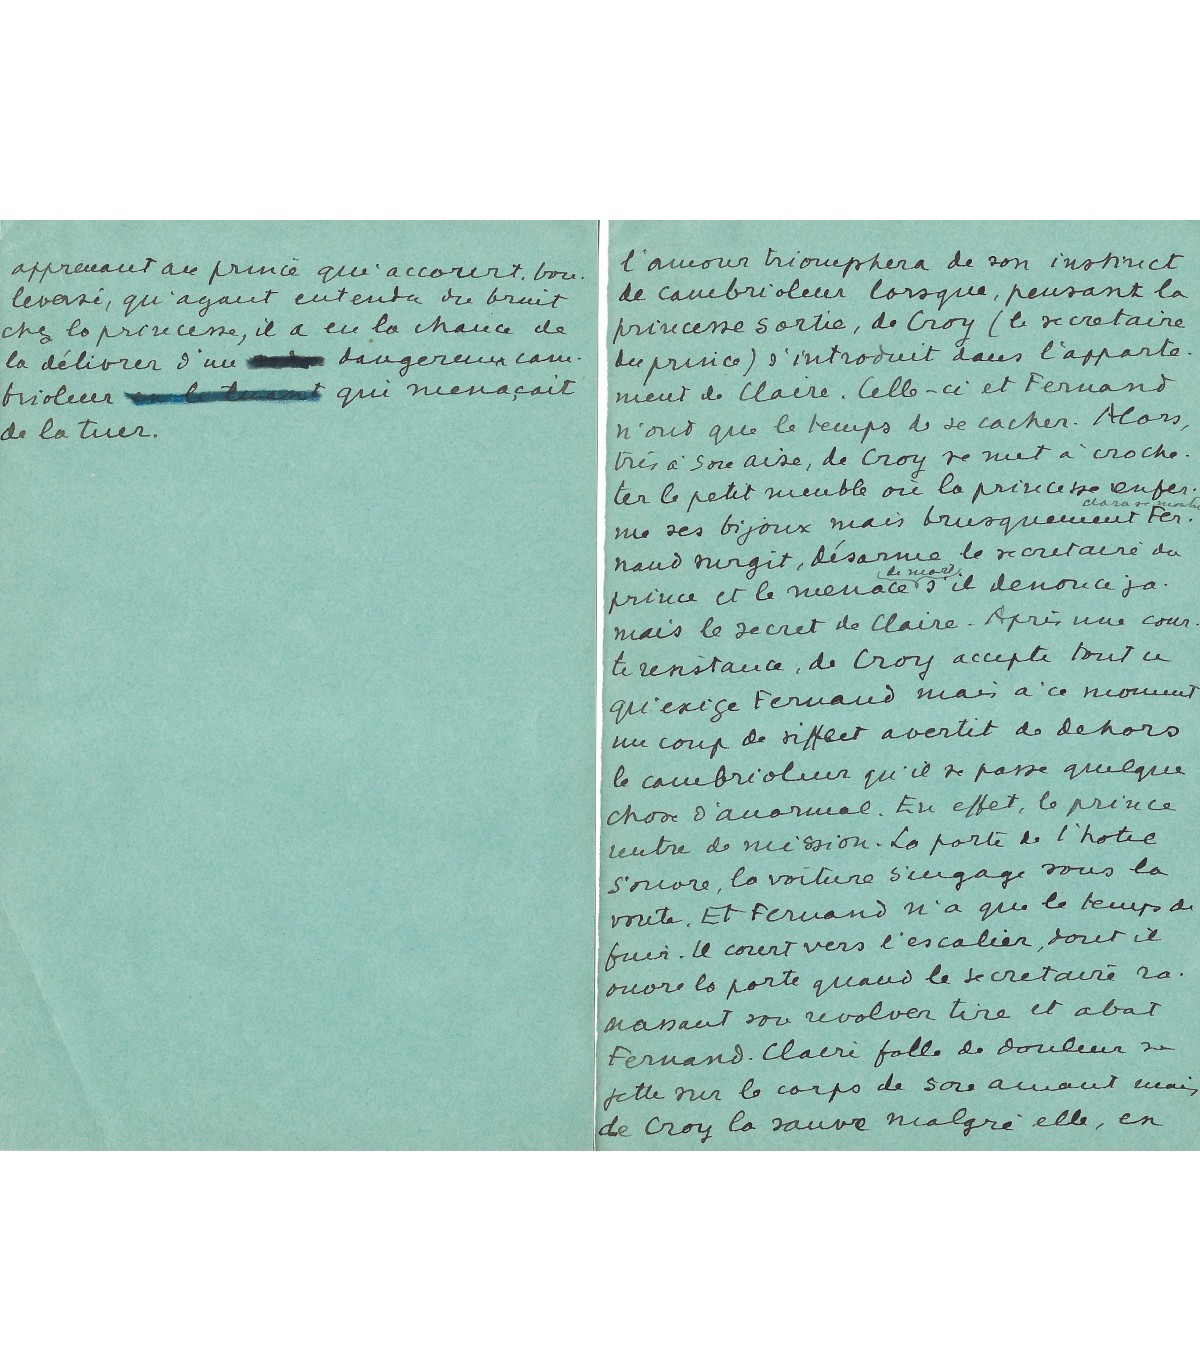 apprenant au prince qui accourt, bou-
leversé, qu'ayant entendu du bruit
chez la princesse, il a eu la chance de
la délivrer d'un dangereux cam-
brioleur en le tuant qui menaçait
de la tuer.
l'amour triomphera de son instinct
de cambrioleur lorsque, pensant la
princesse sortie, de Croy (le secretaire
du prince) s'introduit dans l'apparte-
ment de Claire. Celle-ci et Fernand
n'ont que le temps de se cacher. Alors,
très à son aise, de Croy se met à croche-
ter le petit meuble où la princesse enfer-
me ses bijoux mais brusquement Fer-
nand surgit, désarme le secretaire du
de mort
prince et le menace s'il denonce ja-
mais le secret de Claire. Après une cour-
te resistance, de Croy accepte tout ce
qu'exige Fernand mais à ce moment
un coup de sifflet avertit de dehors
le cambrioleur qu'il se passe quelque
chose d'anormal. En effet, le prince
rentre de mission. La porte de l'hotel
s'ouvre, la voiture s'engage sous la
voute. Et Fernand n'a que le temps de
fuir. Il court vers l'escalier, dont il
ouvre la porte quand le secretaire ra-
massant son revolver tire et abat
Fernand. Claire folle de douleur se
jette sur le corps de son amant mais
de Croy la sauve malgré elle, en